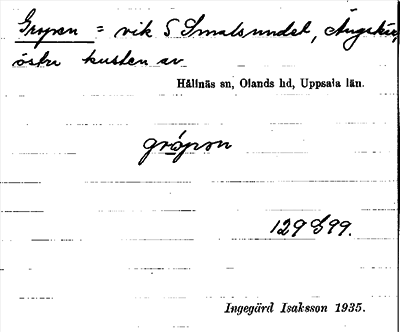 Gropen = vik S Smalsundet, Ängskär,
östra kusten av
Hållnäs sn, Olands hd, Uppsala län.
grópon
129 S 99.
Ingegärd Isaksson 1935.